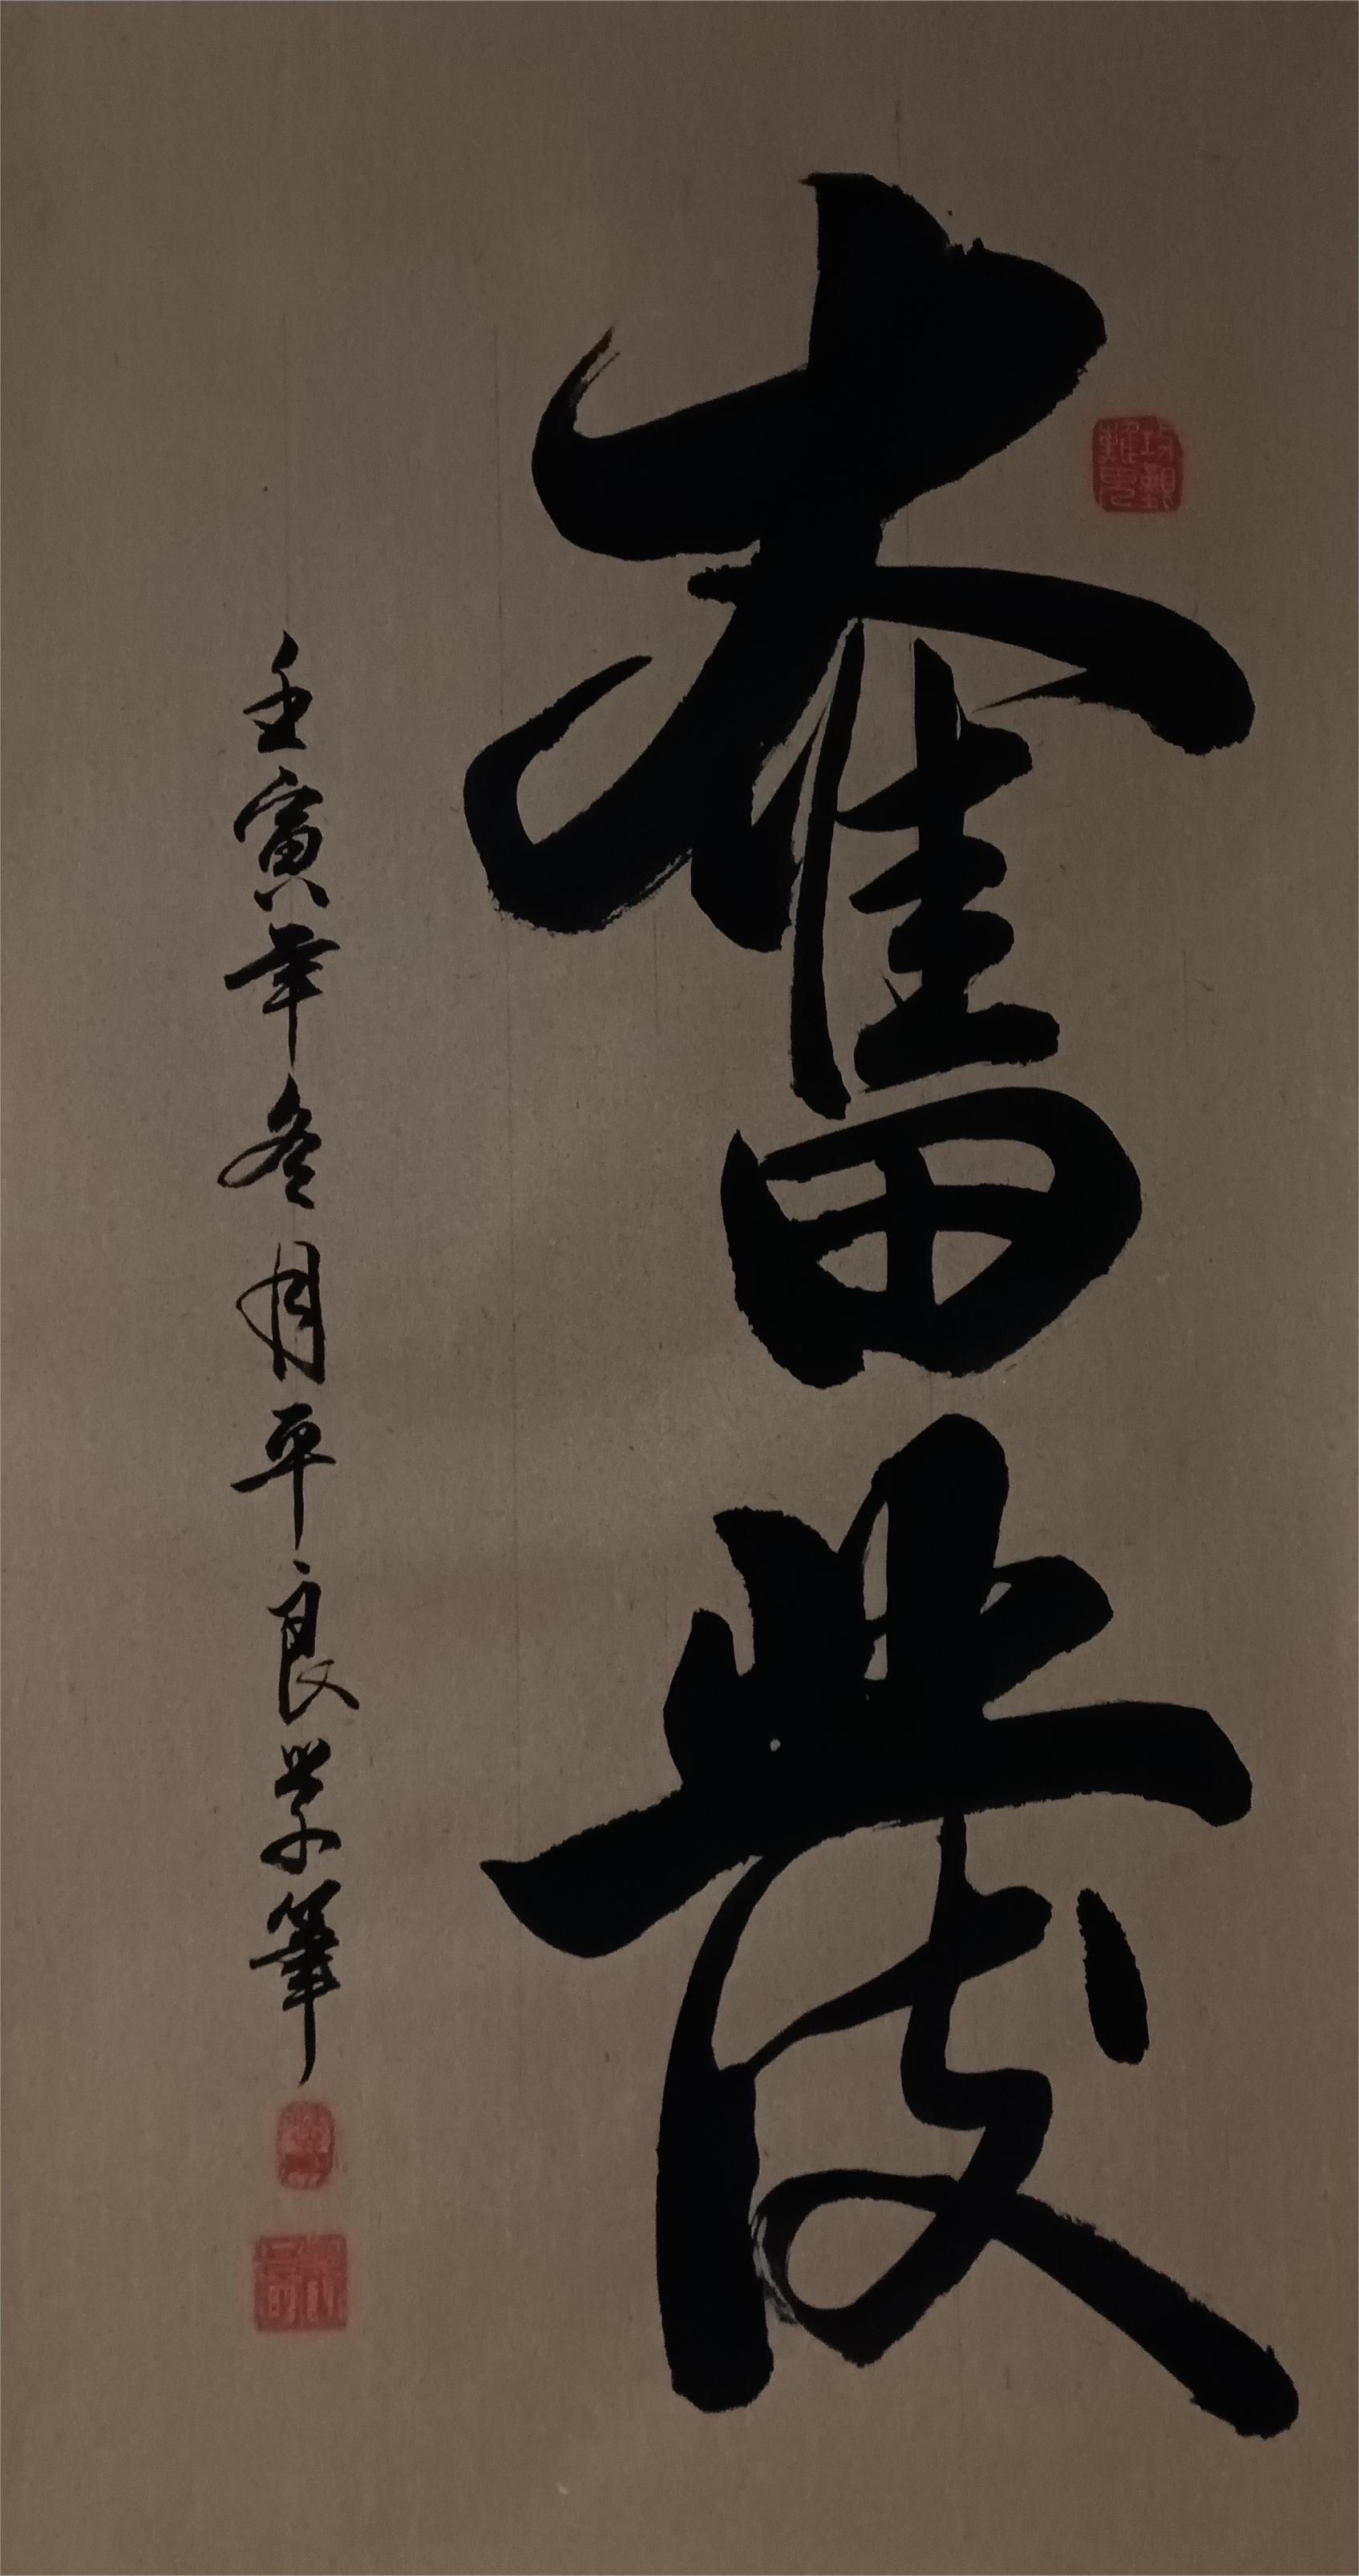 奮發
壬寅年冬月平良学筆